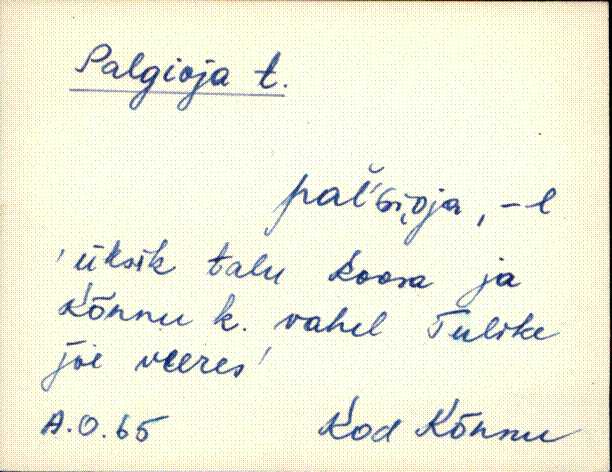 Palgioja t.
pal̆'Gi̮oja, -l
'üksik talu Koosa ja
Kõnnu k. vahel Tulike
jõe veeres'
A.O.65 Kod Kõnnu